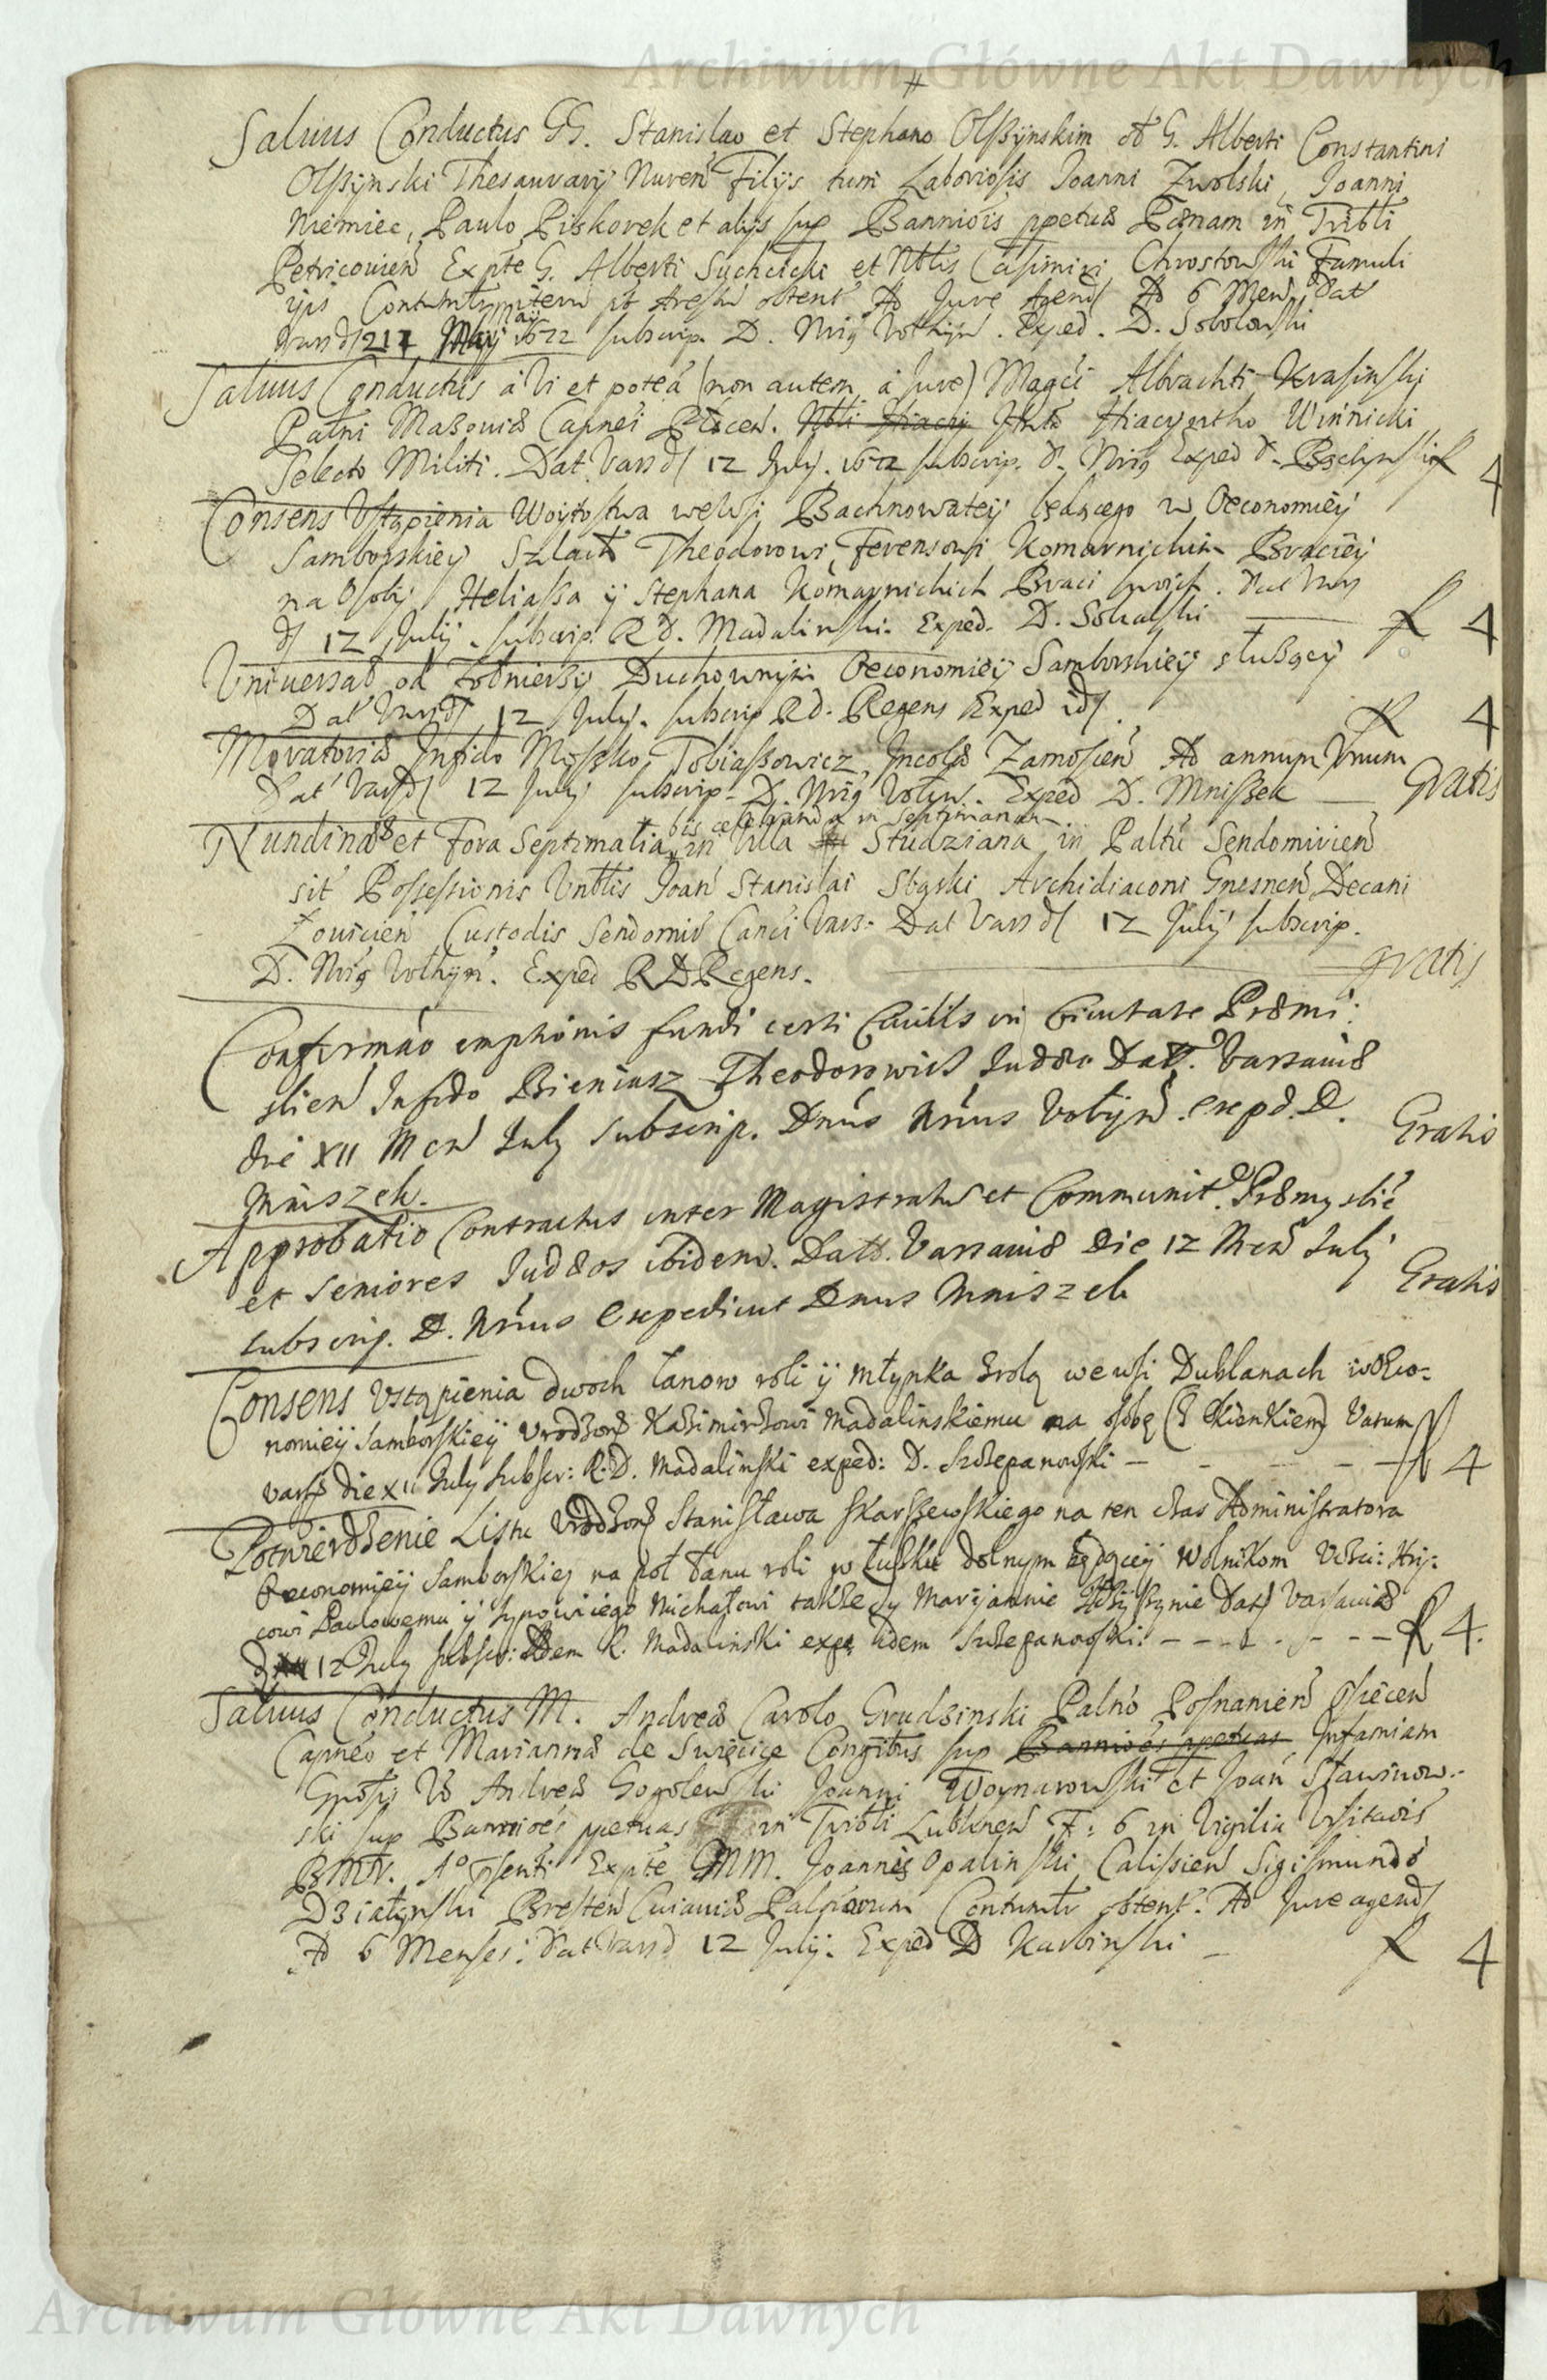 Archiwum Główne Akt Dawnych
#
Salvus Conductus GG. Stanislao et Stephano Olszynskim G. Alberti Constantini
Olszynski Thesaurarij Nuren Filijs tum Laboriosis Joanni Zwolski, Joanni
Niemiec, Paulo Piskorek et alijs sup Banniois ppetuae Paenam in Tribli
Petricouien Expte G. Alberti Suchcicki et Nblis Casimiri Chrostowski Famuli
ipsi obtent Ad Jure Agend Ad 6 Mens. Dat
Vars d 217 May 1672 subscrip. D. Nrig Volhyn. Exped. D. Sobolewski
Salvus Conductus a Vi et potea (non autem a Jure) Magci Albrachti Krasinski
Palni Masoviae Capnei Plocen. Nbli Hiacy Hiacyntho Winnicki
Selecto Militi. Dat Vars d 12 July. 1672 subscrip. D. Nrig Exped D. 4
Consens Vstąpienia Woytostwa wewsi Bachnowatey będącego w Oeconomiey
Samborskiey Szlach Theodorowi, Ferensowi Komarnickim Braciey
na Osoby Heliasza y Stephana Komarnickich Braci swoich. Dat Vars
d 12 July. subscrip. R D. Madalinski. Exped. D. Sokalski f 4
Vniversał od Zołnierzy Duchownym Oeconomiey Samborskiey słuzący
Dat Vars d 12 July. subscrip R d. Regens Exped id f 4
Moratoriae Infido Moszko Tobiaszowicz, Incolae Zamoscien Ad annum Vnum
Dat Vars d 12 July subscrip. D. Nrig Volhyn. Exped D. Mniszek Gratis
bis celebranda in Septimanam
Nundinae et Fora Septimalia in Villa Studziana in Paltu Sendomirien
sit Possessionis Vnblis Joan Stanislai Sbąski Archidiaconi Gnesnen Decani
Łouicien Custodis Sendomir Canci Vars. Dat Vars d 12 July subscrip.
D. Nrig Volhyn. Exped R D Regens. gratis
Confirmao emptionis fundi certi Civilis in Civitate Praemi:
slien Infido Bieniasz Theodorowicz Judaeo Datt. Varsaviae
die XII Men July subscrip. Dnus Nrius Volyn. exped. D. Gratis
Mniszek.
Approbatio Contractus inter Magistratus et Communit. Praemyslie
et seniores Judaeos ibidem. Datt. Varsaviae die 12 Men July Gratis
subscrip. D. Nrius Expedivit Dnus Mniszek
Consens Vstąpienia dwoch Łanow roli y młynka z rolą we wsi Dublanach w Oeco-
nomiey Samborskiey Vrodzon Kazimirzowi Madalinskiemu na osobę Datum
Vars die XII July subscr: R. D. Madalinski exped: D. Szczepanowski – – – – – f 4
Potwierdzenie Listu Vrodzon Stanisława Skarszewskiego na ten czas Administratora
Oeconomiey Samborskiey na poł Łanu roli w Łuzku dolnym będącey Wolnikom
cowi Pawłowemu y synowi iego Michałowi także y Maryannie Dat Varsaviae
12 July subscr: Idem R. Madalinski exped idem Szczepanowski: – – – f 4.
Salvus Conductus M. Andreae Carolo Grudzinski Palno Posnanien Osiecen
Capneo et Mariannae de Swięcice Congibus sup Banniois ppetuas Infamiam
Gnosis Vo Andreae Gogolewski Joanni Woynarowski et Joan Sławinow-
ski sup Banniois ppetuas in Tribli Lublinen F: 6 in Vigilia Visitaois
BMV. Ao psenti Expte GMM. Joannis Opalinski Calissien Sigismundo
Działynski Bresten Cuiaviae Palnorum obtent. Ad Jure agend
Ad 6 Menses: Dat Vars d 12 July. Exped D Karbinski – f 4
Archiwum Główne Akt Dawnych